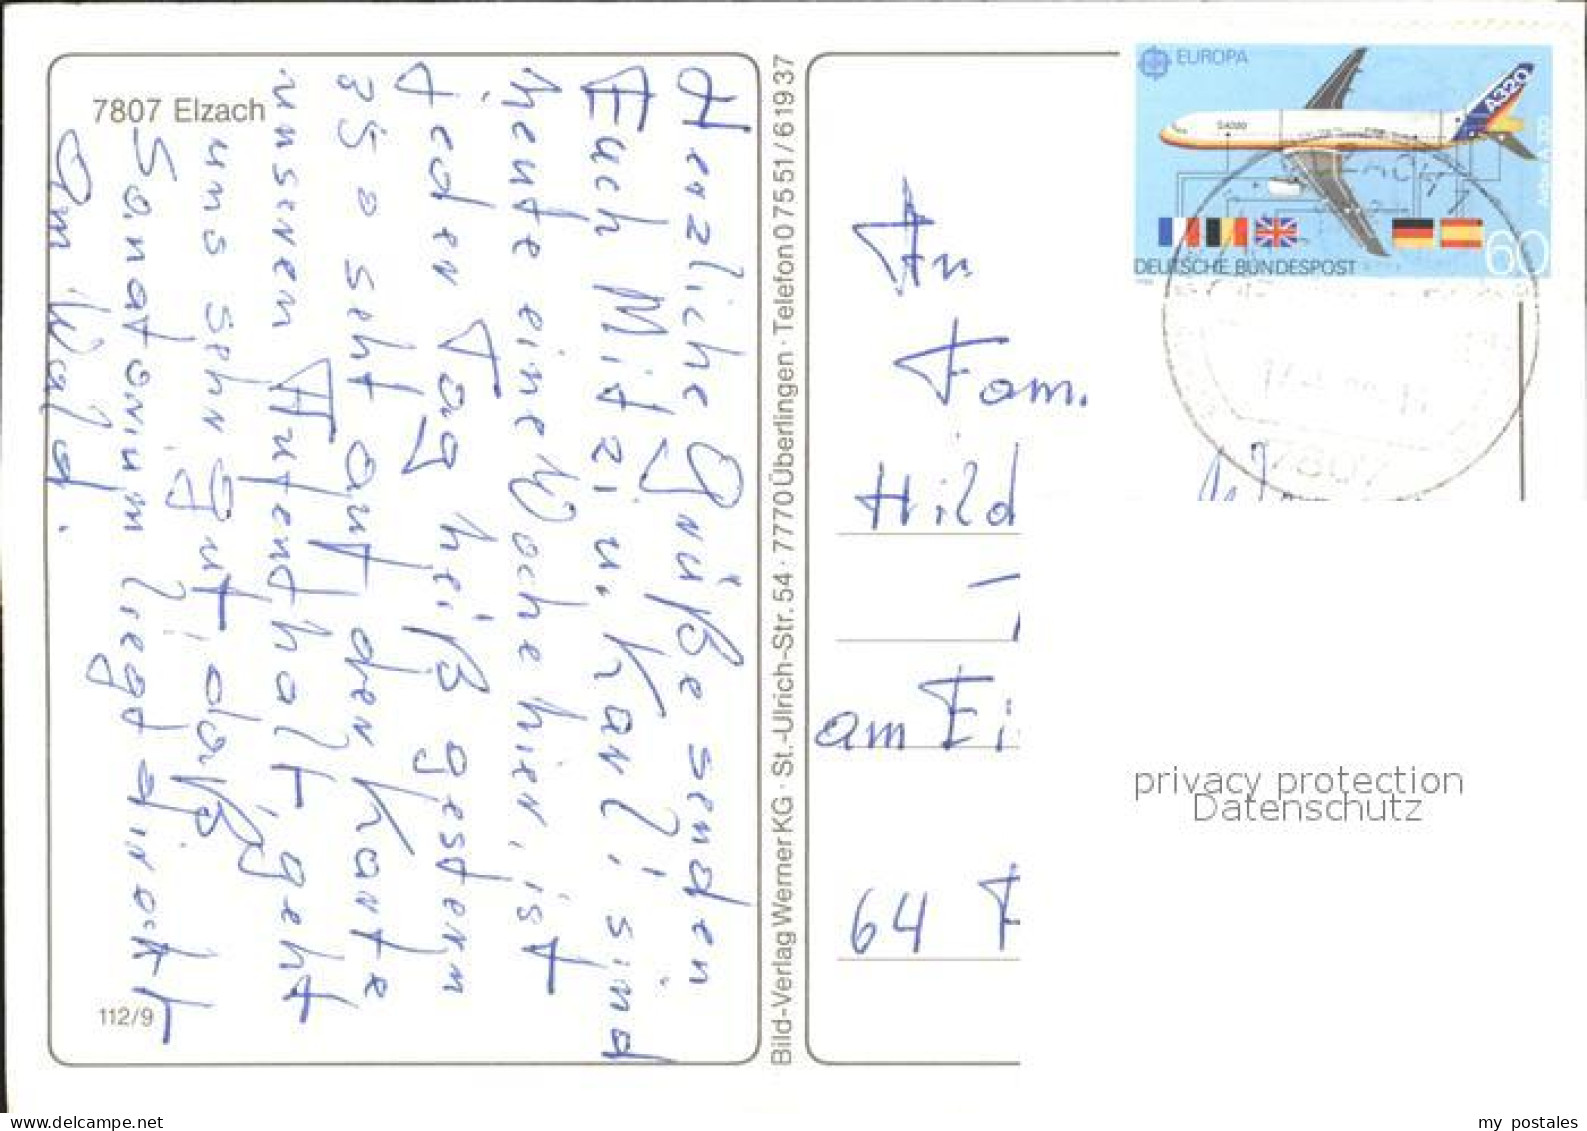 7807 Elzach
Herzliche Grüße senden
Euch Mitzi u. Karl! sind
heute eine Woche hier, ist
jeden Tag heiß gestern
35° seht auf der Karte
unseren Aufenthalt, geht
uns sehr gut, daß
Sanatorium liegt dinckt
am Wald.
112/9
Bild-Verlag Werner KG · St.-Ulrich-Str. 54 · 7770 Überlingen · Telefon 0 75 51 / 6 19 37
EUROPA
A320
Airbus A 320
DEUTSCHE BUNDESPOST
60
7807
An
Fam.
Hild
am Ei
64 F
privacy protection
Datenschutz
www.delcampe.net
my postales